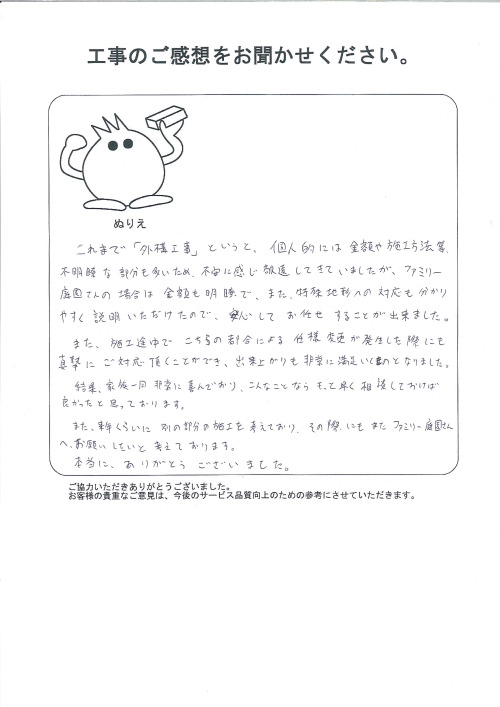 工事のご感想をお聞かせください。
ぬりえ
これまで「外構工事」というと、個人的には金額や施工方法等、
不明瞭な部分も多いため、不安に感じ敬遠してきていましたが、ファミリー
庭園さんの場合は金額も明瞭で、また、特殊地形への対応も分かり
やすく説明いただけたので、安心してお任せすることが出来ました。
また、施工途中でこちらの都合による仕様変更が発生した際にも
真摯にご対応頂くことができ、出来上がりも非常に満足いくものとなりました。
結果、家族一同非常に喜んでおり、こんなことならもっと早く相談しておけば
良かったと思っております。
また、来年くらいに別の部分の施工を考えており、その際にもまたファミリー庭園さん
へ、お願いしたいと考えております。
本当に、ありがとうございました。
ご協力いただきありがとうございました。
お客様の貴重なご意見は、今後のサービス品質向上のための参考にさせていただきます。